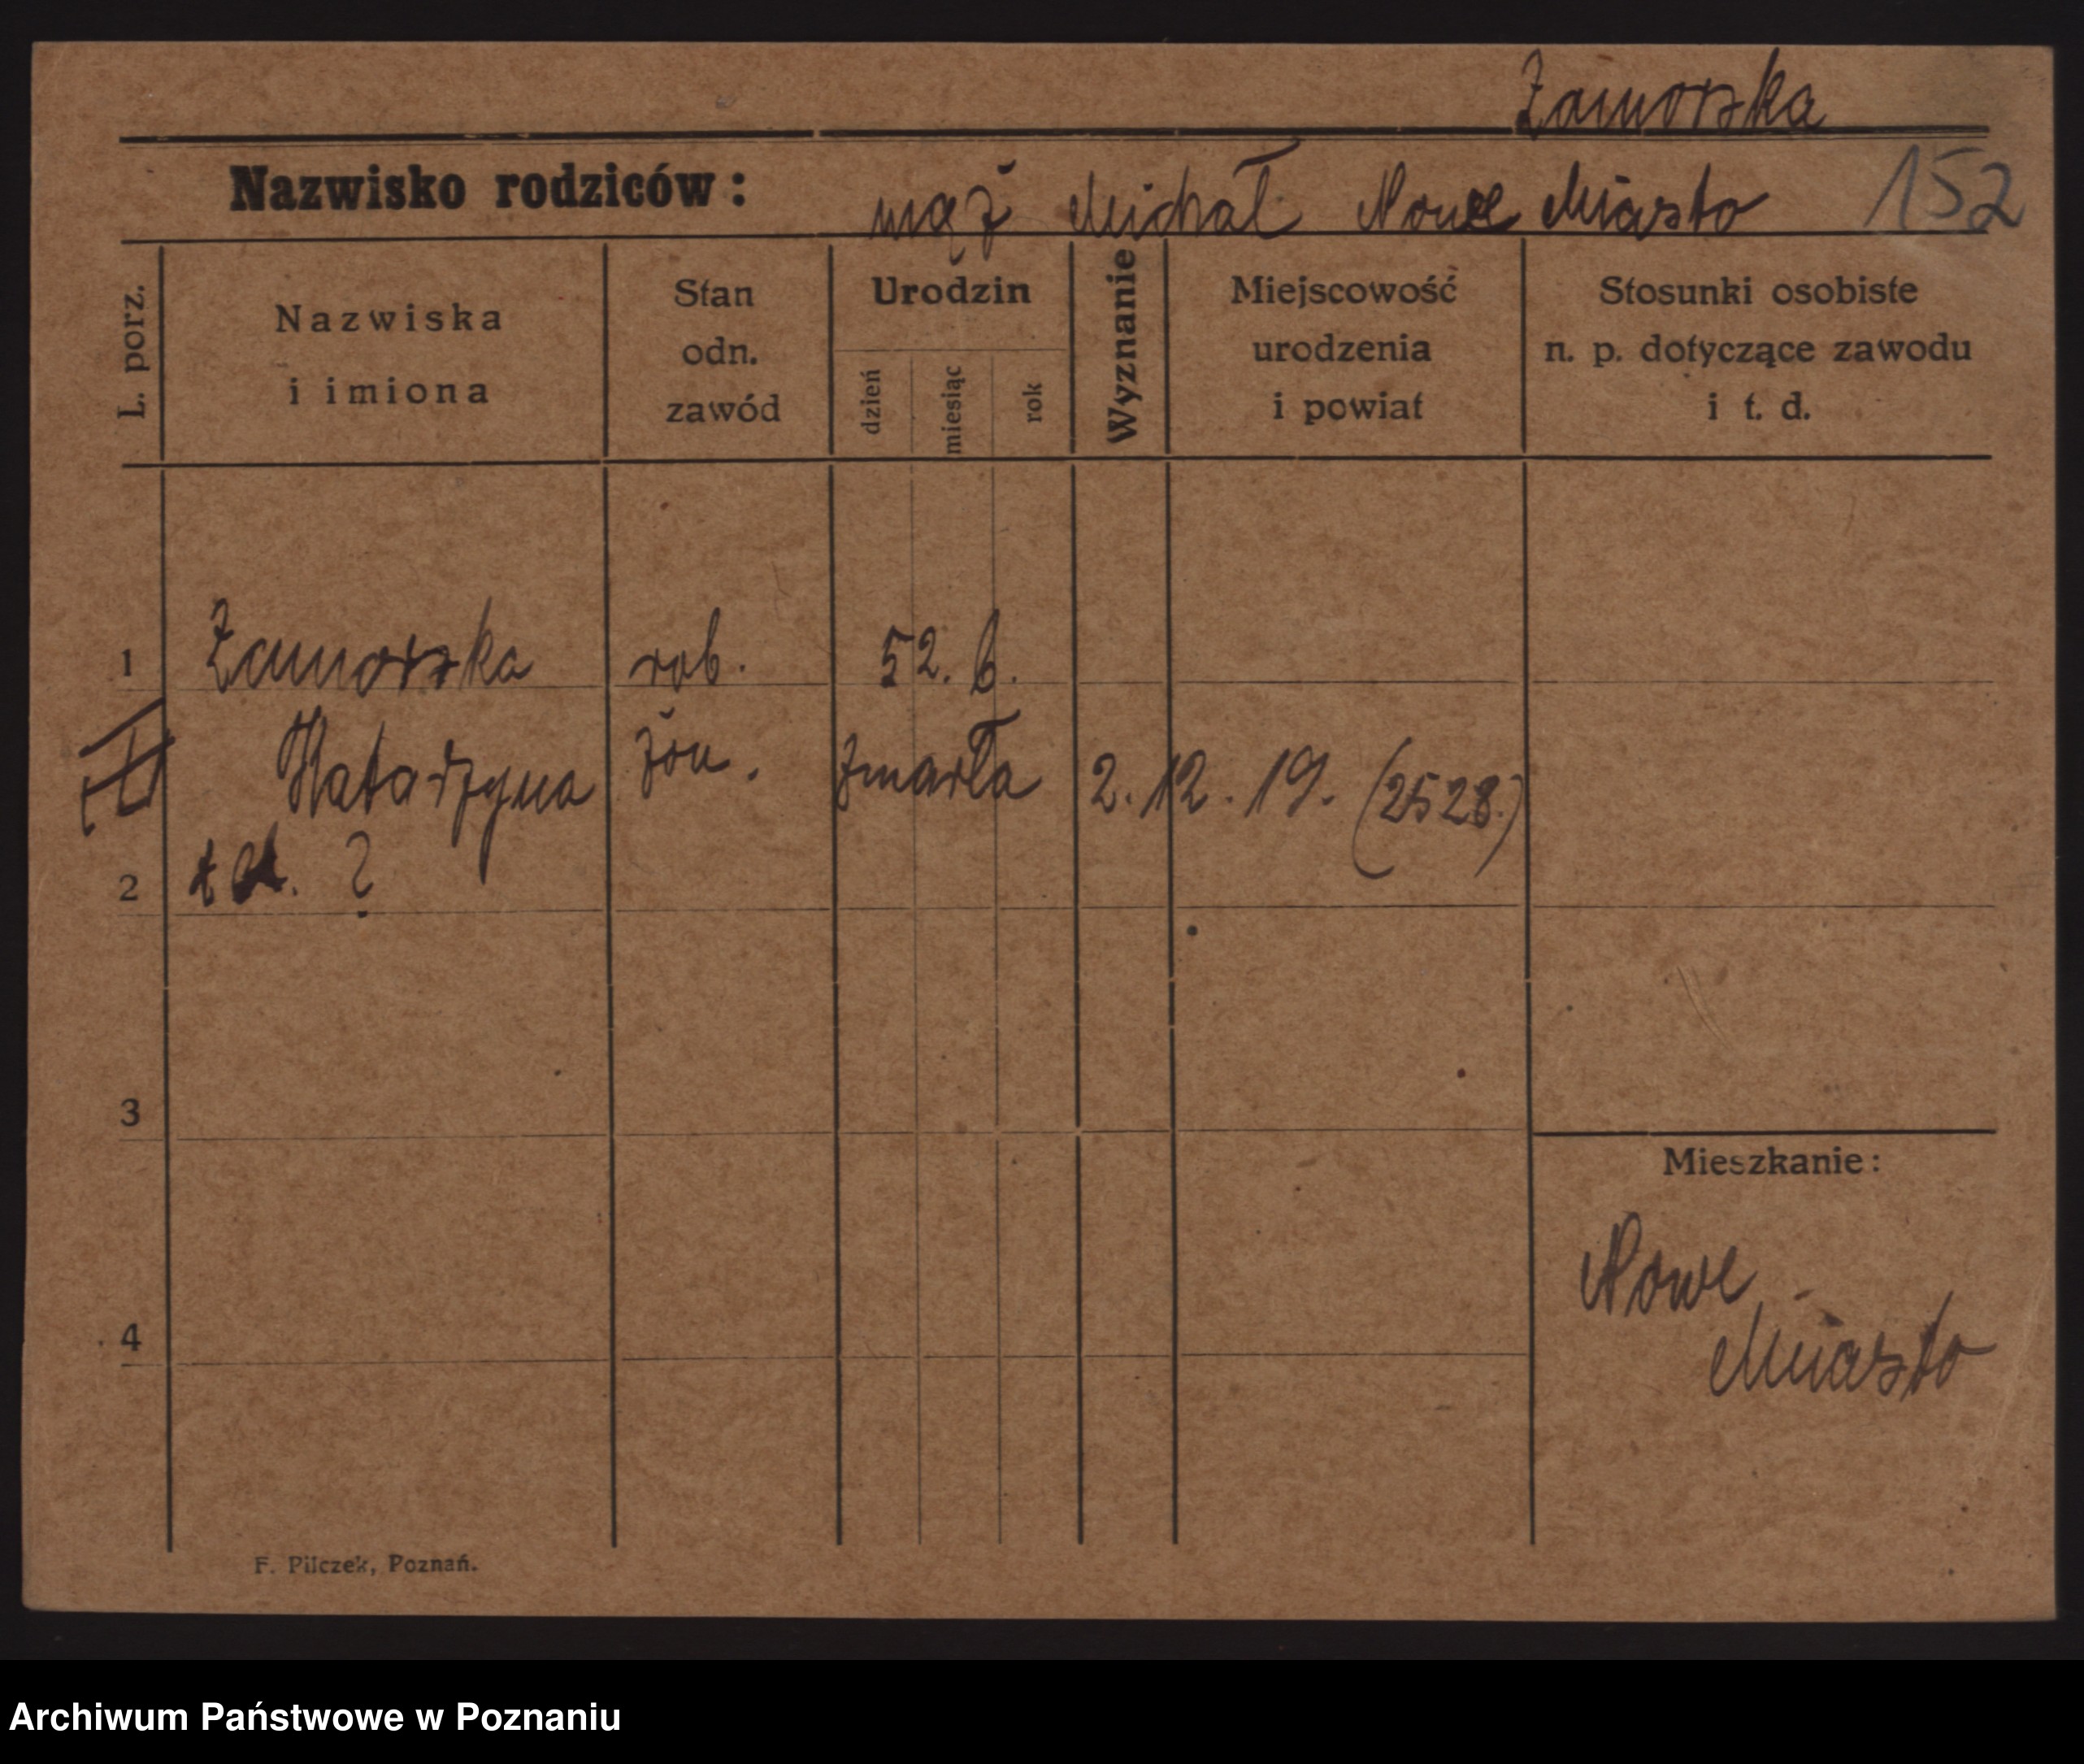 Zamorska
Nazwisko rodziców: mąż Michał Nowe Miasto 152
L. porz.
Nazwiska
i imiona
Stan
odn.
zawód
Urodzin
dzień
miesiąc
rok
Wyznanie
Miejscowość
urodzenia
i powiat
Stosunki osobiste
n. p. dotyczące zawodu
i t. d.
1 Zamorska rob. 52. b.
Katarzyna żon. zmarła 2.12.19. (2528.)
2 ?
3
Mieszkanie:
Nowe
4 Miasto
F. Pilczek, Poznań.
Archiwum Państwowe w Poznaniu